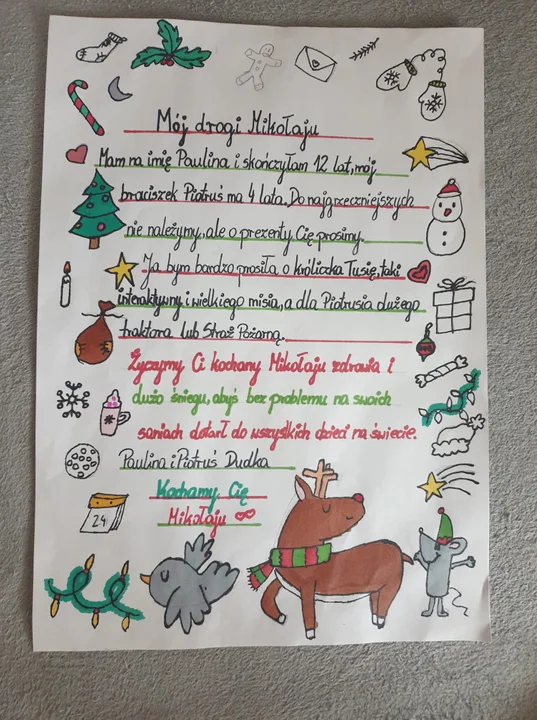 Mój drogi Mikołaju
Mam na imię Paulina i skończyłam 12 lat, mój
braciszek Piotruś ma 4 lata. Do najgrzeczniejszych
nie należymy, ale o prezenty Cię prosimy.
Ja bym bardzo prosiła o króliczka Tusię, taki
interaktywny i wielkiego misia, a dla Piotrusia dużego
traktora lub Straż Pożarną.
Życzymy Ci kochany Mikołaju zdrowia i
dużo śniegu, abyś bez problemu na swoich
saniach dotarł do wszystkich dzieci na świecie.
Paulina i Piotruś Dudka
Kochamy Cię
Mikołaju
24